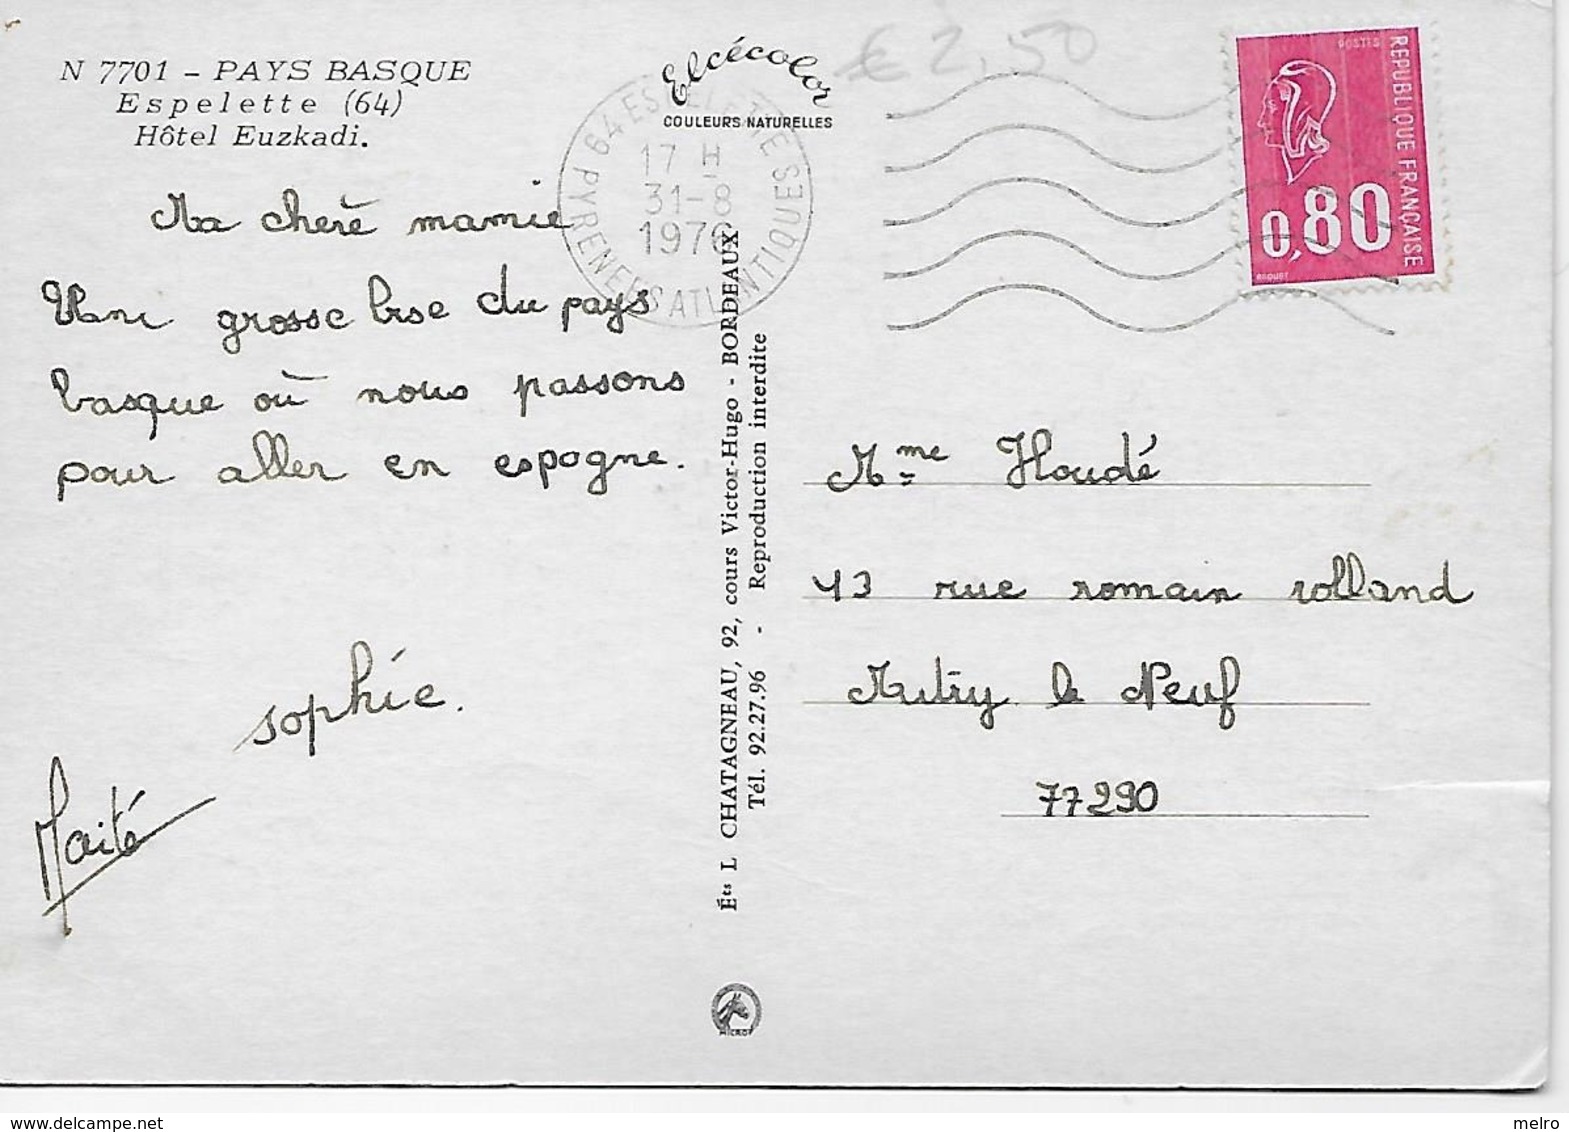 € 2,50
N 7701 - PAYS BASQUE
Espelette (64)
Hôtel Euzkadi.
Elcécolor
COULEURS NATURELLES
64 ESPELETTE
17 H
31-8
1976
PYRENEES ATLANTIQUES
POSTES
REPUBLIQUE FRANÇAISE
0,80
Ma cherè mamie
Une grosse bise du pays
basque où nous passons
pour aller en espogne.
sophie.
Maité
Éts L CHATAGNEAU, 92, cours Victor-Hugo - BORDEAUX
Tél. 92.27.96 - Reproduction interdite
Mme Houdé
43 rue romain rolland
Mitry le Neuf
77290
melro